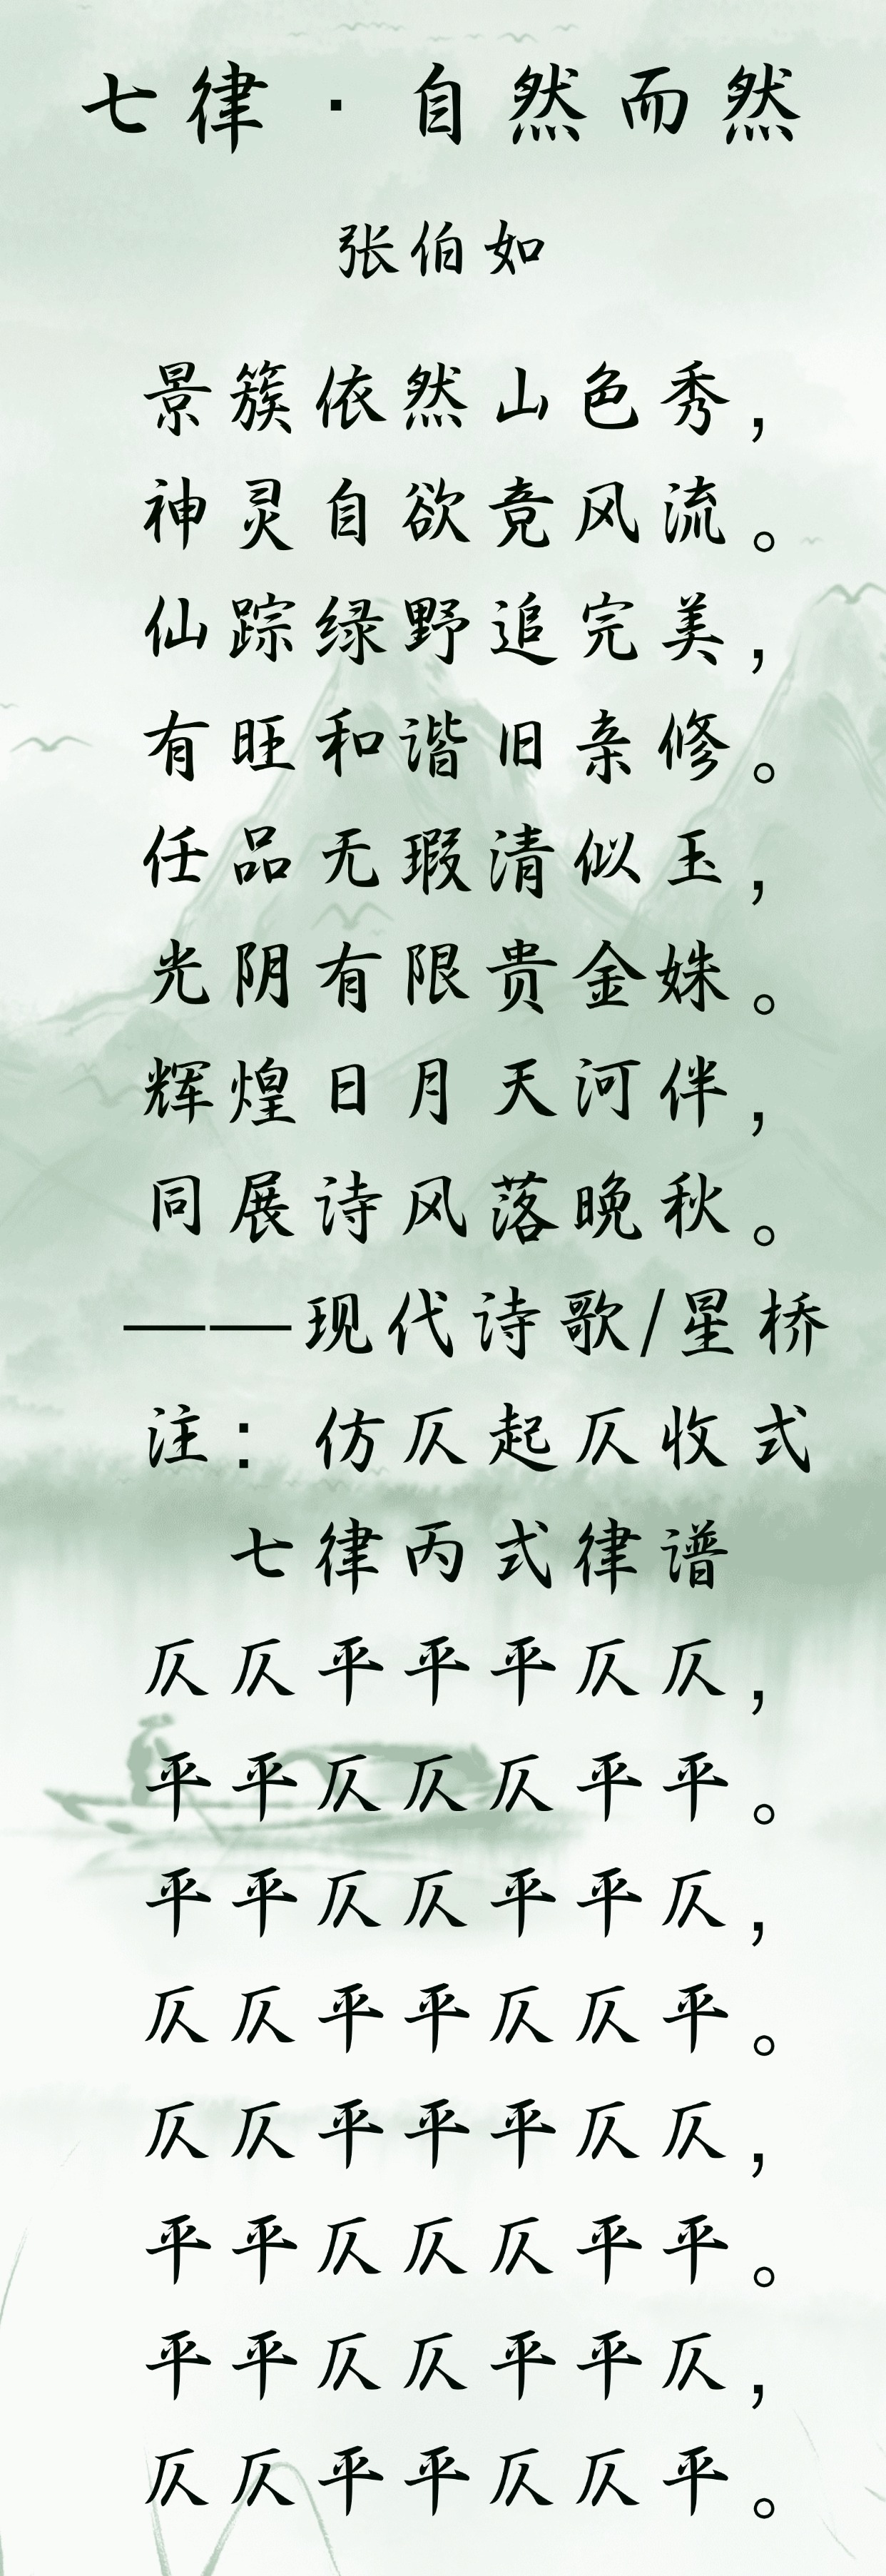 七律·自然而然
张伯如
景簇依然山色秀，
神灵自欲竞风流。
仙踪绿野追完美，
有旺和谐旧亲修。
任品无瑕清似玉，
光阴有限贵金姝。
辉煌日月天河伴，
同展诗风落晚秋。
——现代诗歌/星桥
注：仿仄起仄收式
七律丙式律谱
仄仄平平平仄仄，
平平仄仄仄平平。
平平仄仄平平仄，
仄仄平平仄仄平。
仄仄平平平仄仄，
平平仄仄仄平平。
平平仄仄平平仄，
仄仄平平仄仄平。